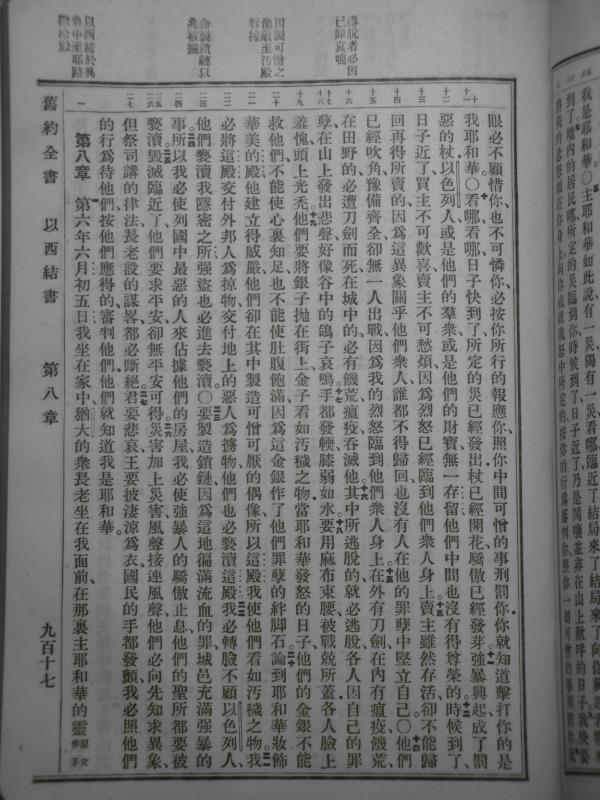 得脫者必因
己罪哀鳴
因製可憎之
像嚴至汚殿
行掠
命製鎖鏈以
兆被擄
以西結於異
像中至耶路
撒冷
眼必不顧惜你也不可憐你必按你所行的報應你照你中間可憎的事刑罰你你就知道擊打你的是
我耶和華○看哪看哪日子快到了所定的災已經發出杖已經開花驕傲已經發芽強暴興起成了罰
惡的杖以色列人或是他們的羣衆或是他們的財寶無一存留他們中間也沒有得尊榮的時候到了
日子近了買主不可歡喜賣主不可愁煩因爲烈怒已經臨到他們衆人身上賣主雖然存活却不能歸
回再得所賣的因爲這異象關乎他們衆人誰都不得歸回也沒有人在他的罪孽中堅立自己○他們
已經吹角豫備齊全卻無一人出戰因爲我的烈怒臨到他們衆人身上在外有刀劍在內有瘟疫饑荒
在田野的必遭刀劍而死在城中的必有饑荒瘟疫吞滅他其中所逃脫的就必逃脫各人因自己的罪
孽在山上發出悲聲好像谷中的鴿子哀鳴手都發輭膝弱如水要用麻布束腰被戰兢所蓋各人臉上
羞愧頭上光禿他們要將銀子拋在街上金子看如汚穢之物當耶和華發怒的日子他們的金銀不能
救他們不能使心裏知足也不能使肚腹飽滿因爲這金銀作了他們罪孽的絆脚石論到耶和華妝飾
華美的殿他建立得威嚴他們卻在其中製造可憎可厭的偶像所以這殿我使他們看如汚穢之物我
必將這殿交付外邦人爲掠物交付地上的惡人爲擄物他們也必褻瀆這殿我必轉臉不顧以色列人
他們褻瀆我隱密之所強盜也必進去褻瀆○要製造鎖鏈因爲這地徧滿流血的罪城邑充滿強暴的
事所以我必使列國中最惡的人來佔據他們的房屋我必使強暴人的驕傲止息他們的聖所都要被
褻瀆毀滅臨近了他們要求平安卻無平安可得災害加上災害風聲接連風聲他們必向先知求異象
但祭司講的律法長老設的謀畧都必斷絕君要悲哀王要披淒涼爲衣國民的手都發顫我必照他們
的行爲待他們按他們應得的審判他們他們就知道我是耶和華
第八章 第六年六月初五日我坐在家中猶大的衆長老坐在我面前在那裏主耶和華的靈原文作手
舊約全書 以西結書 第八章 九百十七